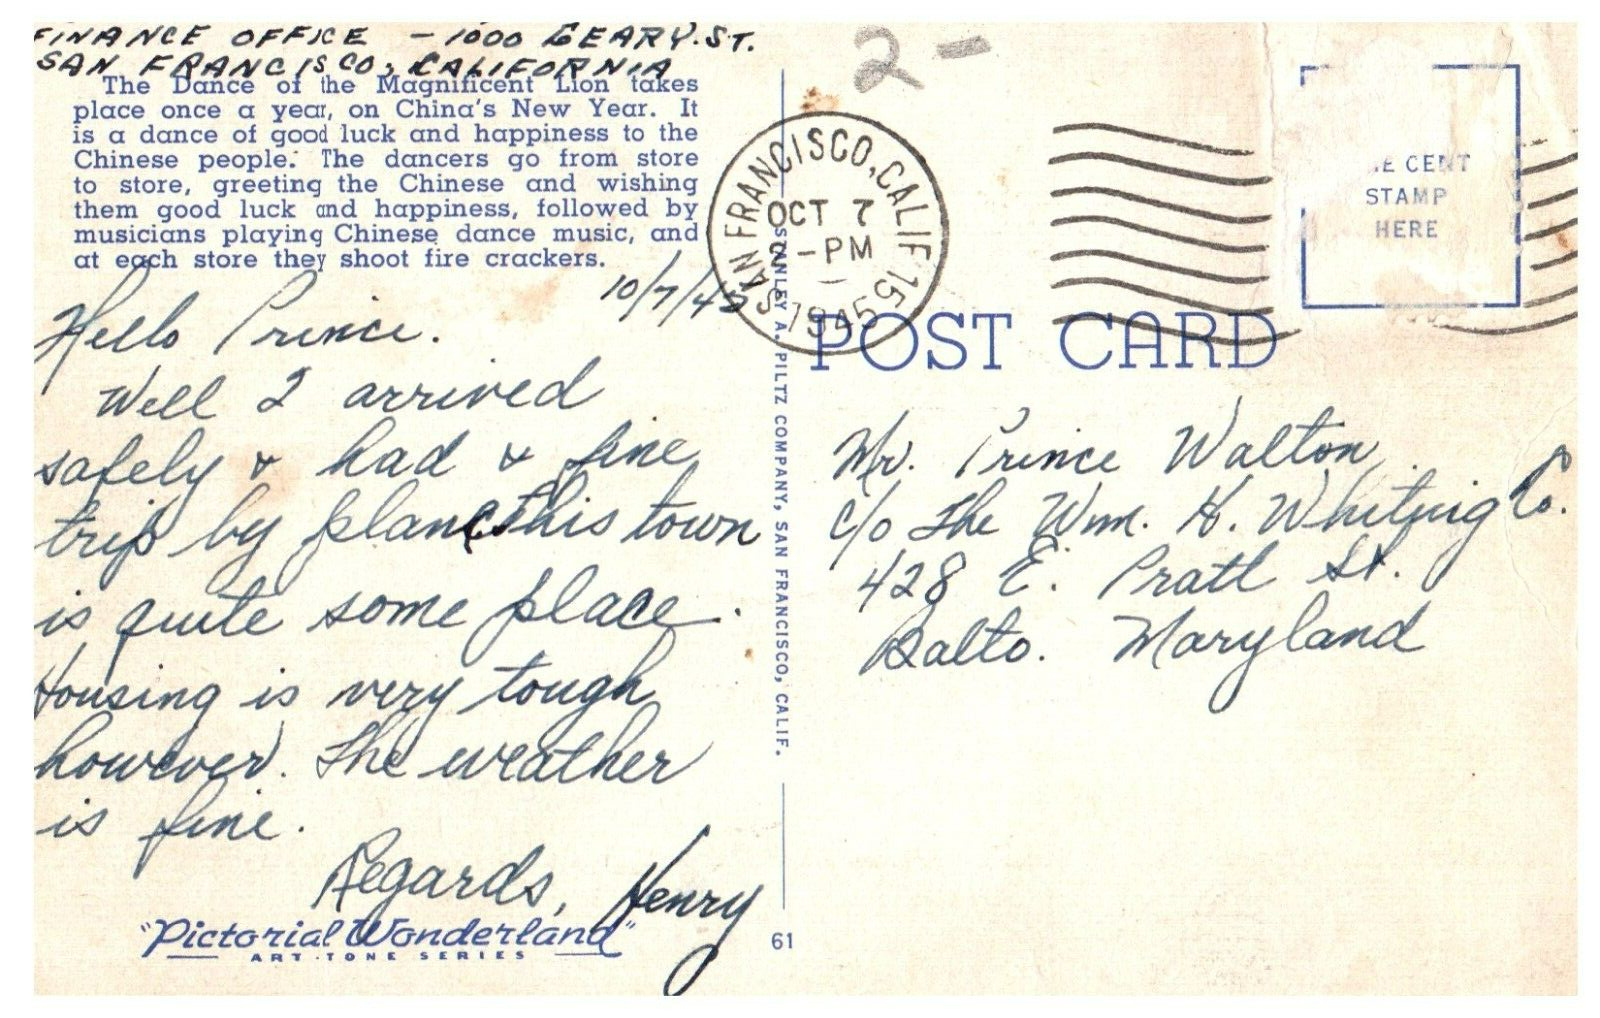 FINANCE OFFICE - 1000 GEARY. ST.
SAN FRANCISCO, CALIFORNIA
The Dance of the Magnificent Lion takes
place once a year, on China's New Year. It
is a dance of good luck and happiness to the
Chinese people. The dancers go from store
to store, greeting the Chinese and wishing
them good luck and happiness, followed by
musicians playing Chinese dance music, and
at each store they shoot fire crackers.
10/7/45
Hello Prince.
Well I arrived
safely & had a fine
trip by plane. This town
is quite some place.
Housing is very tough
however. The weather
is fine.
Regards, Henry
"Pictorial Wonderland"
ART-TONE SERIES
STANLEY A. PILTZ COMPANY, SAN FRANCISCO, CALIF.
61
2 -
SAN FRANCISCO, CALIF. 15
OCT 7
2 - PM
1945
E CENT
STAMP
HERE
POST CARD
Mr. Prince Walton
c/o The Wm. H. Whiting Co.
428 E. Pratt St.
Balto. Maryland